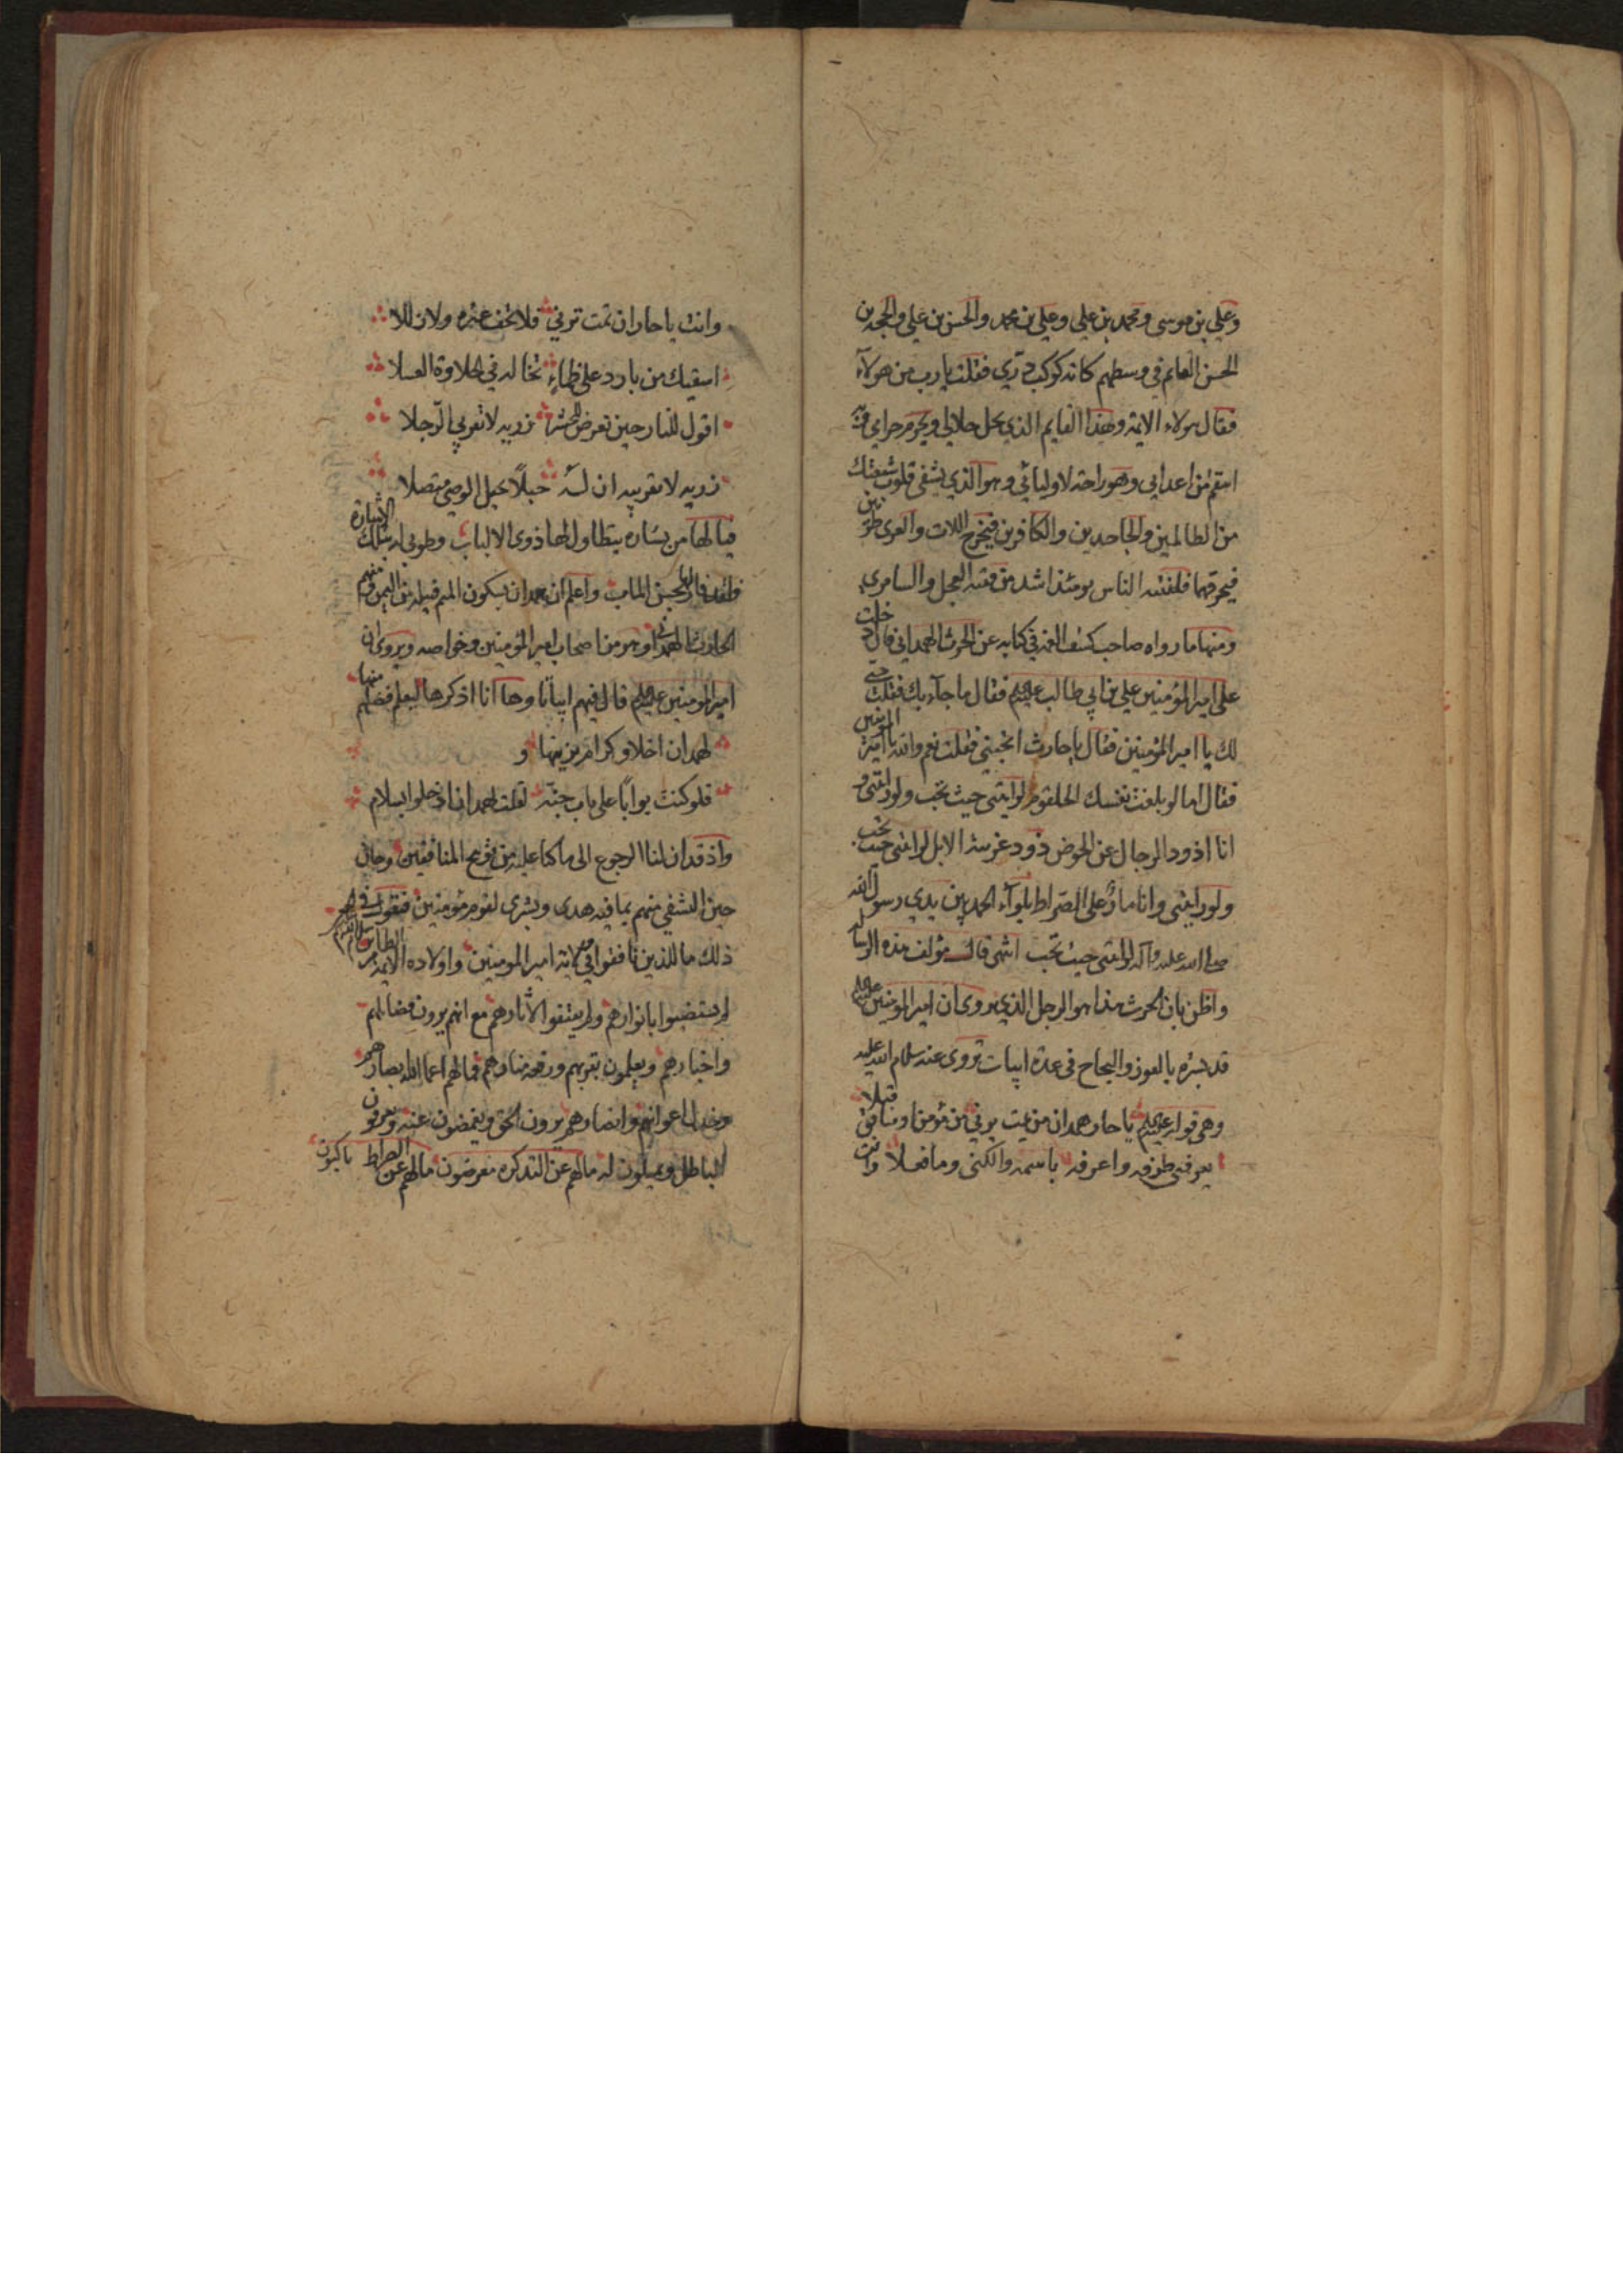 وعلي بن موسى ومحمد بن علي وعلي بن محمد والحسن بن علي والحجة بن
الحسن القايم في وسطهم كانه كوكب دري فقلت يا رب من هولآء
فقال هولاء الايمة وهذا القايم الذي يحل حلالي ويحرم حرامي وبه
انتقم من اعدايي وهو راحة لاوليائي وهو الذي يشفي قلوب شيعتك
من الظالمين والجاحدين والكافرين فيخرج اللات والعزى طريين
فيحرقهما فلفتنة الناس يومئذ اشد من فتنة العجل والسامري
ومنها ما رواه صاحب كشف الغمة في كتابه عن الحرث الهمداني قال دخلت
على امير المؤمنين علي بن ابي طالب عليه السلم فقال ما جآء بك فقلت حبي
لك يا امير المؤمنين فقال يا حارث اتحبني فقلت نعم والله يا امير المؤمنين
فقال اما لو بلغت نفسك الحلقوم لرايتني حيث تحب ولو رايتني و
انا اذود الرجال عن الحوض ذود غريبة الابل لرايتني حيث تحب
ولو رايتني وانا مار على الصراط بلوآء الحمد بين يدي رسول الله
صلى الله عليه وآله لرايتني حيث تحب انتهى قال مؤلف هذه الرسالة
واظن بان الحرث هذا هو الرجل الذي يروى ان امير المومنين عليه السلم
قد بشره بالفوز والنجاح في عدة ابيات تروى عنه سلام الله عليه
وهي قوله عليه السلم يا حار همدان من يمت يرني من مؤمن او منافق قبلا
يعرفني طرفه واعرفه باسمه والكنى وما فعلا وانت
وانت يا حار ان تمت ترني فلا تخف عثرة ولا زللا
اسقيك من بارد على ظماء تخاله في الحلاوة العسلا
اقول للنار حين تعرض للحشر ذريه لا تقربي الرجلا
ذريه لا تقربيه ان له حبلا بحبل الوصي متصلا
فيالها من بشارة يتطاول لها ذوى الالباب وطوبى لمن بتلك الاشارة
بحسن الماب واعلم ان همدان بسكون الميم قبيلة من اليمن منهم
الحارث الهمداني وهو من اصحاب امير المؤمنين وخواصه ويروى ان
امير المومنين عليه السلم قال فيهم ابياتا وها انا اذكرها ليعلم فضلهم منها
لهمدان اخلاق كرام يزينها و
فلو كنت بوابا على باب جنة لقلت لهمدان ادخلوا بسلام
واذ قد ان لنا الرجوع الى ما كنا عليه من المنافقين وحان
حين التشفي منهم بما فيه هدى وبشرى لقوم مؤمنين فنقول في
ذلك ما للذين نافقوا في ولاية امير المومنين واولاده الايمة الطاهرين سلام الله عليهم
لم يستضيئوا بانوارهم ولم يقتفوا لاثارهم مع انهم يرون فضائلهم
واخبارهم ويعلمون بقربهم ورفعة منارهم فمالهم اعما الله ابصارهم
وخذل اعوانهم وانصارهم يرون الحق ويغمضون عنه ويعرفون
الباطل ويميلون له مالهم عن التذكرة معرضون مالهم عن الصراط ناكبون